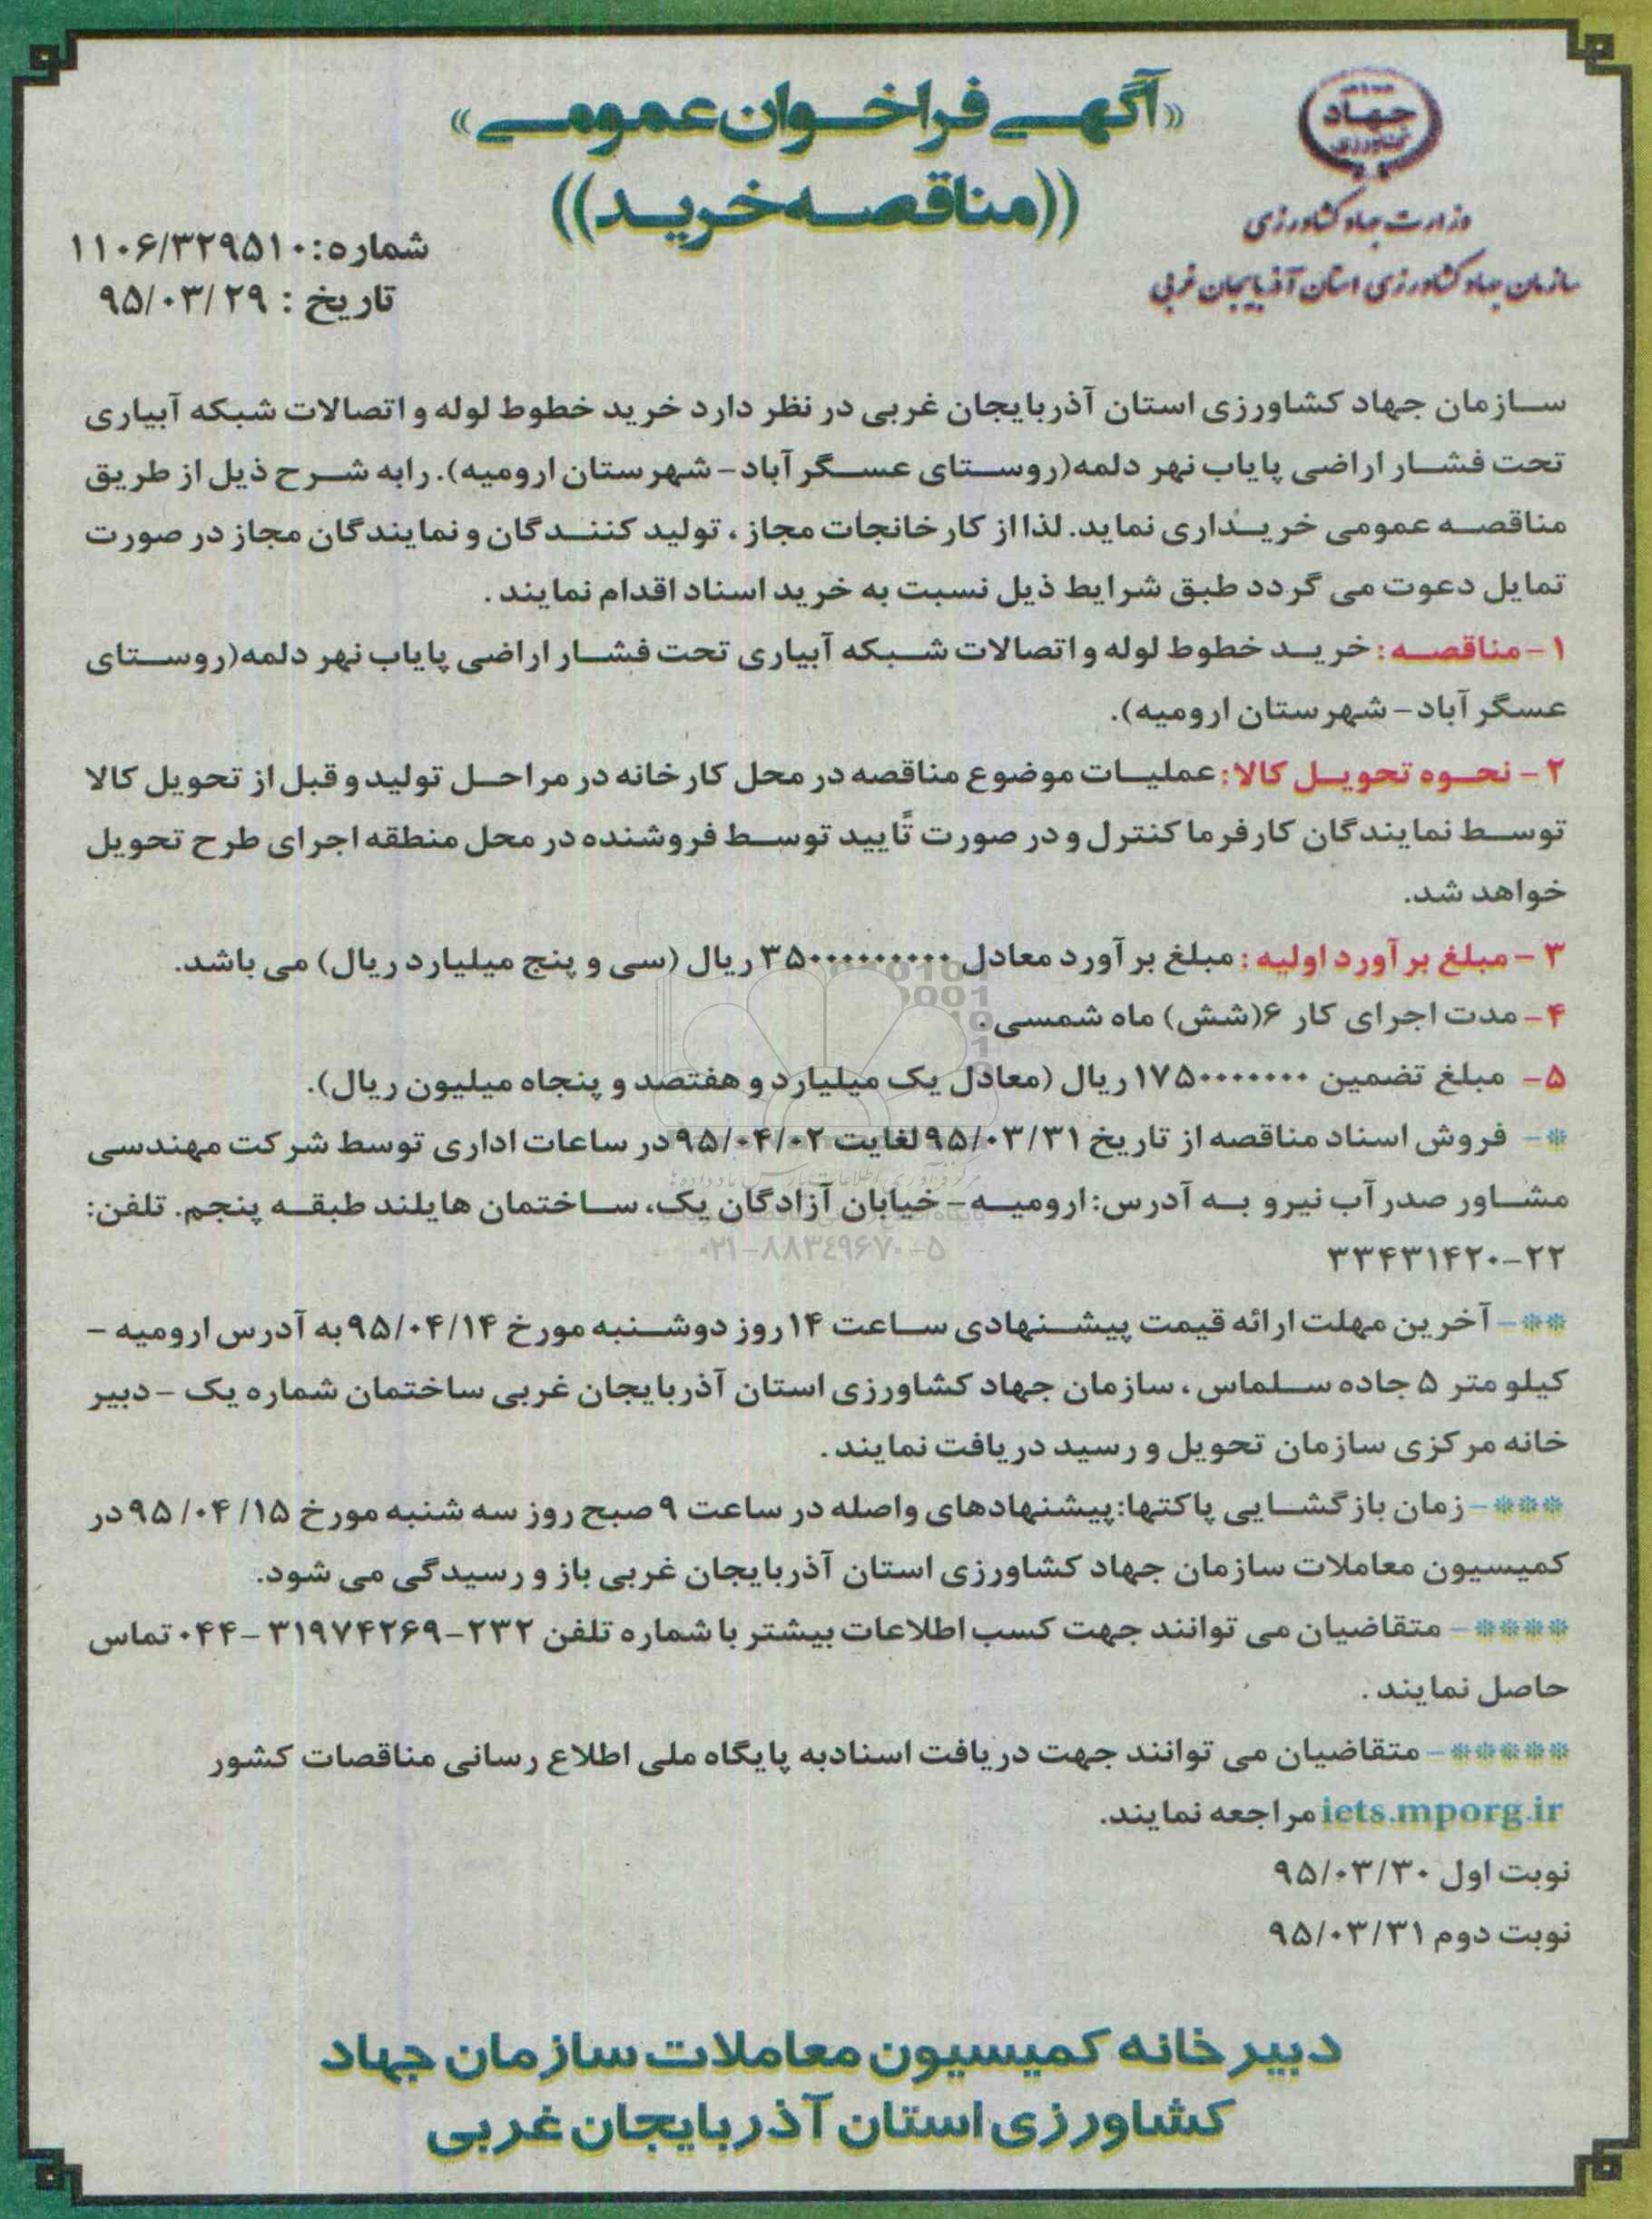 «آگهی فراخوان عمومی»
((مناقصه خرید))
جهاد
کشاورزی
وزارت جهاد کشاورزی
سازمان جهاد کشاورزی استان آذربایجان غربی
شماره: ۱۱۰۶/۳۲۹۵۱۰
تاریخ : ۹۵/۰۳/۲۹
سازمان جهاد کشاورزی استان آذربایجان غربی در نظر دارد خرید خطوط لوله و اتصالات شبکه آبیاری
تحت فشار اراضی پایاب نهر دلمه(روستای عسگر آباد - شهرستان ارومیه). رابه شرح ذیل از طریق
مناقصه عمومی خریداری نماید. لذا از کارخانجات مجاز ، تولید کنندگان و نمایندگان مجاز در صورت
تمایل دعوت می گردد طبق شرایط ذیل نسبت به خرید اسناد اقدام نمایند .
۱- مناقصه : خرید خطوط لوله و اتصالات شبکه آبیاری تحت فشار اراضی پایاب نهر دلمه(روستای
عسگر آباد - شهرستان ارومیه).
۲ - نحوه تحویل کالا: عملیات موضوع مناقصه در محل کارخانه در مراحل تولید و قبل از تحویل کالا
توسط نمایندگان کارفرما کنترل و در صورت تأیید توسط فروشنده در محل منطقه اجرای طرح تحویل
خواهد شد.
۳ - مبلغ برآورد اولیه : مبلغ برآورد معادل ۳۵۰۰۰۰۰۰۰۰۰ ریال (سی و پنج میلیارد ریال) می باشد.
۴- مدت اجرای کار ۶(شش) ماه شمسی .
۵- مبلغ تضمین ۱۷۵۰۰۰۰۰۰۰ ریال (معادل یک میلیارد و هفتصد و پنجاه میلیون ریال).
*- فروش اسناد مناقصه از تاریخ ۹۵/۰۳/۳۱ لغایت ۹۵/۰۴/۰۲ در ساعات اداری توسط شرکت مهندسی
مشاور صدر آب نیرو به آدرس: ارومیه - خیابان آزادگان یک، ساختمان هایلند طبقه پنجم. تلفن:
۳۳۴۳۱۴۲۰-۲۲
۰۲۱-۸۸۳۴۹۶۷۰-۵
**- آخرین مهلت ارائه قیمت پیشنهادی ساعت ۱۴ روز دوشنبه مورخ ۹۵/۰۴/۱۴ به آدرس ارومیه -
کیلو متر ۵ جاده سلماس ، سازمان جهاد کشاورزی استان آذربایجان غربی ساختمان شماره یک - دبیر
خانه مرکزی سازمان تحویل و رسید دریافت نمایند .
***- زمان بازگشایی پاکتها: پیشنهادهای واصله در ساعت ۹ صبح روز سه شنبه مورخ ۹۵/۰۴/۱۵ در
کمیسیون معاملات سازمان جهاد کشاورزی استان آذربایجان غربی باز و رسیدگی می شود.
****- متقاضیان می توانند جهت کسب اطلاعات بیشتر با شماره تلفن ۲۳۲-۳۱۹۷۴۲۶۹-۰۴۴ تماس
حاصل نمایند .
*****- متقاضیان می توانند جهت دریافت اسنادبه پایگاه ملی اطلاع رسانی مناقصات کشور
iets.mporg.ir مراجعه نمایند.
نوبت اول ۹۵/۰۳/۳۰
نوبت دوم ۹۵/۰۳/۳۱
دبیرخانه کمیسیون معاملات سازمان جهاد
کشاورزی استان آذربایجان غربی